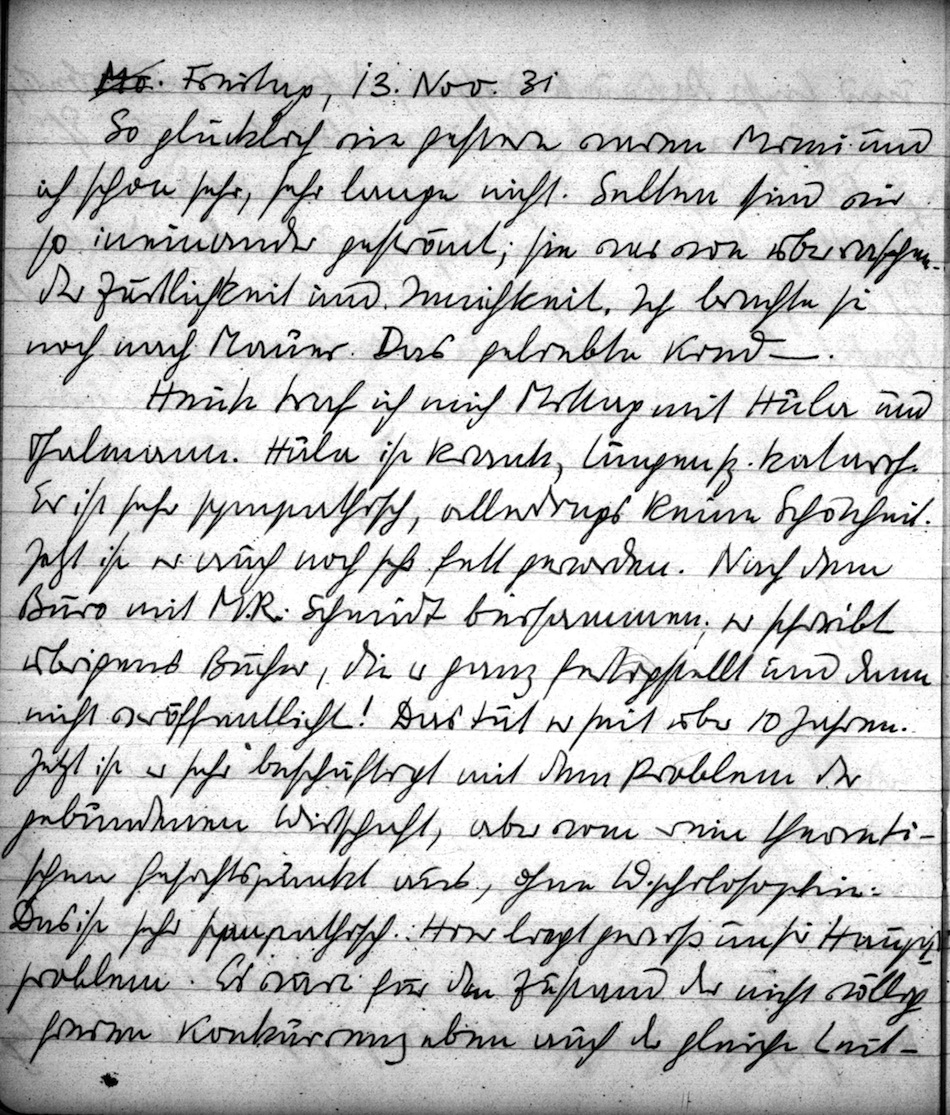 Mo. Freitag, 13. Nov. 31
So glücklich wie gestern waren Mimi und
ich schon sehr, sehr lange nicht. Selten sind wir
so ineinander geströmt; sie war von überraschen-
der Zärtlichkeit und Innigkeit. Ich brachte sie
noch nach Mauer. Das geliebte Kind —.
Heute traf ich mich Mittag mit Hula und
Thalmann. Hula ist krank, Lungensp. katarrh.
Er ist sehr sympathisch, allerdings keine Schönheit.
Jetzt ist er auch noch sehr fett geworden. Nach dem
Büro mit M.R. Schmidt beisammen; er schreibt
übrigens Bücher, die er ganz fertigstellt und dann
nicht veröffentlicht! Das tut er seit über 10 Jahren.
Jetzt ist er sehr beschäftigt mit dem Problem der
gebundenen Wirtschaft, aber vom rein theoreti-
schen Gesichtspunkt aus, ohne W.philosophie.
Das ist sehr sympathisch. Hier liegt gewiß unser Haupt
problem. Es wäre für den Zustand der nicht völlig
freien Konkurrenz eben auch der gleiche Leit-